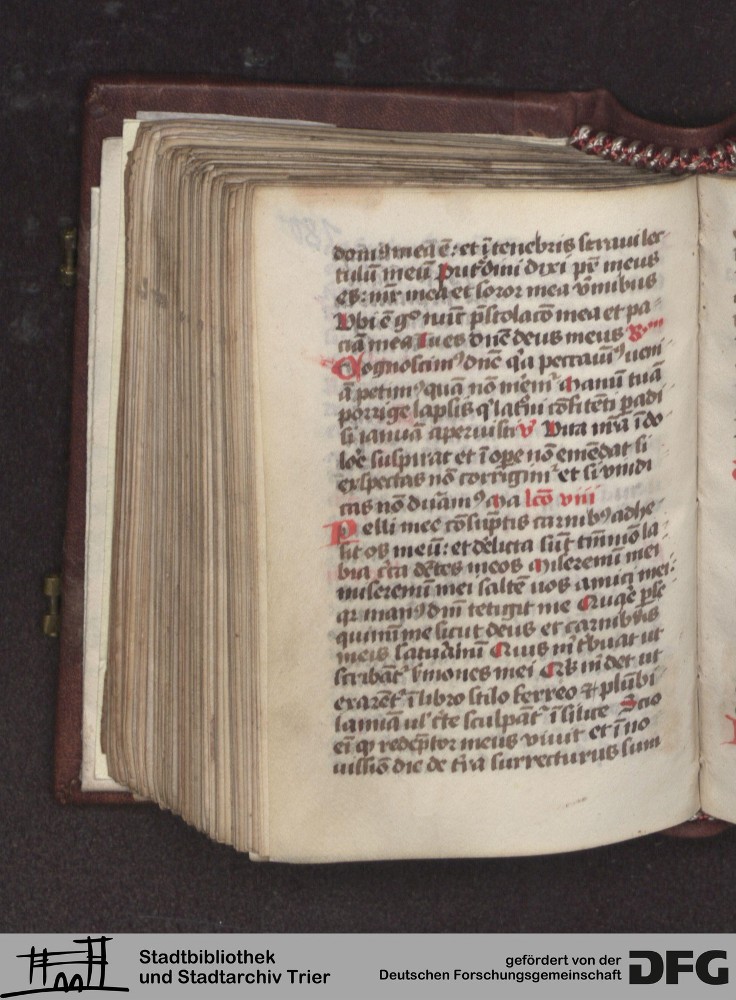 domꝰ mea ē: et ī tenebris straui lec
tulū meū Putdini dixi pr̄ meus
es: mr̄ mea et soror mea v̄mibus
Vbi ē gͦ nūc p̄stolacō mea et pa-
cia mea Tu es dn̄e deus meus R̄
Cognoscimꝰ dn̄e qͥa peccauimꝰ ueni
ā petimꝰ quā nō mem̄ Manū tuā
porrige lapsis qͥ lat̄ni cōfitēti padi
si ianuā aperuisti v̄ Vita nr̄a ī do
lor̄ suspirat et ī oper̄ nō emēdat si
exspectas nō corrigim̄ et si vindi
cas nō duramꝰ Ma lcō viii
Pelli mee cōsūptis carnibꝰ adhe
sit os meū: et delicta sūt tm̄mō la-
bia cͥca dētes meos Miseremī mei
miseremī mei saltē uos amici mei:
qͥ manꝰ dn̄i tetigit me Quar̄ pse
quimī me sicut deus et carnibꝰ
meis saturamī Quis m̄ tͥbuat ut
scribātͬ sermones mei Qͥs m̄ det ut
exarētͬ ī libro stilo ferreo et plūbi
lamīa ul' cͤte sculpātͬ ī silice Scio
eī qͩ redēptor meus viuit et ī no
uissiō die de tͬra surrecturus sum
Stadtbibliothek
und Stadtarchiv Trier
gefördert von der
Deutschen Forschungsgemeinschaft
DFG